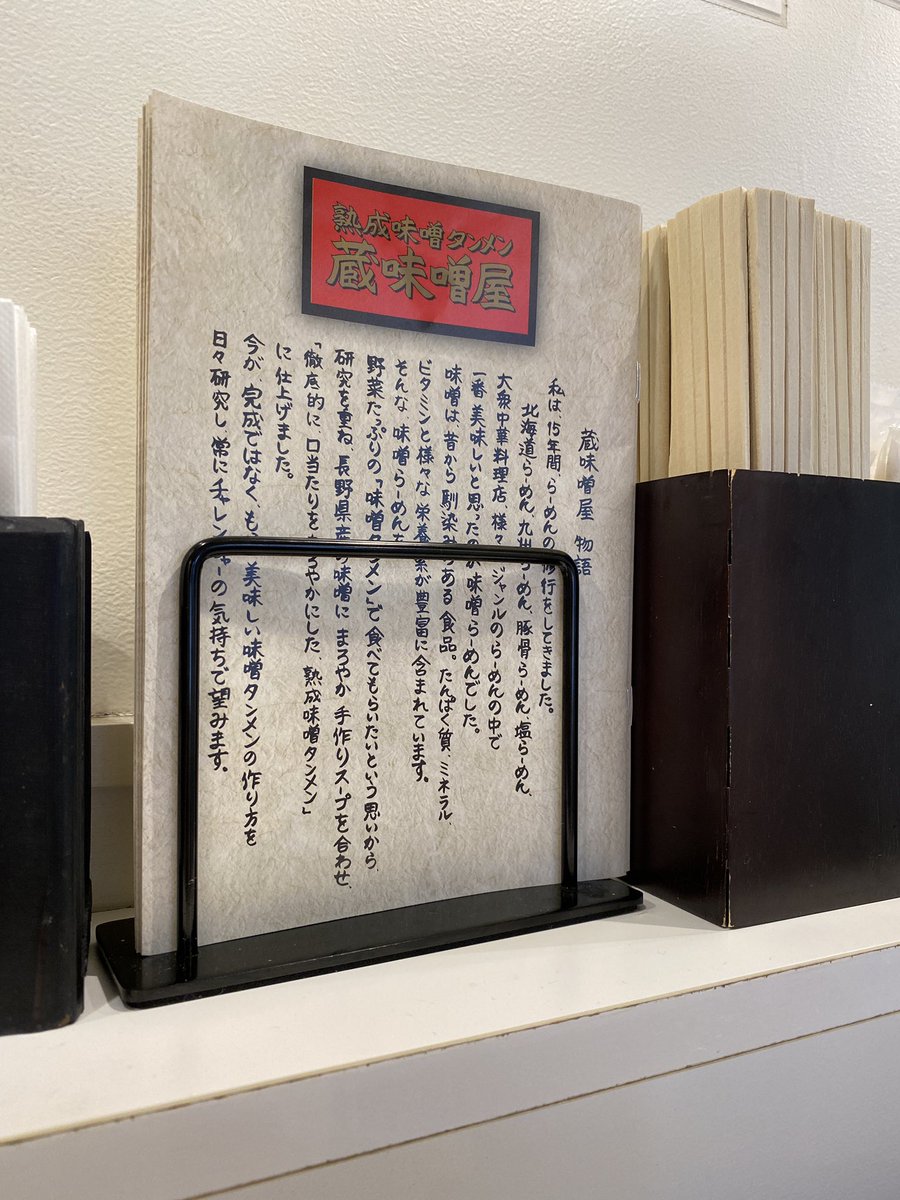 熟成味噌タンメン
蔵味噌屋
蔵味噌屋 物語
私は、15年間らーめんの修行をしてきました。
北海道らーめん、九州らーめん、豚骨らーめん、塩らーめん、
大衆中華料理店 様々 ジャンルのらーめんの中で
一番美味しいと思った が味噌らーめんでした。
味噌は、昔から馴染み ある食品。たんぱく質、ミネラル、
ビタミンと様々な栄養素が豊富に含まれています。
そんな、味噌らーめんを
野菜たっぷりの「味噌タンメン」で食べてもらいたいという思いから、
研究を重ね、長野県産 味噌に まろやか 手作りスープを合わせ、
「徹底的に、口当たりを まろやかにした、熟成味噌タンメン」
に仕上げました。
今が、完成ではなく、も 美味しい味噌タンメンの作り方を
日々研究し、常にチャレンジャーの気持ちで望みます。